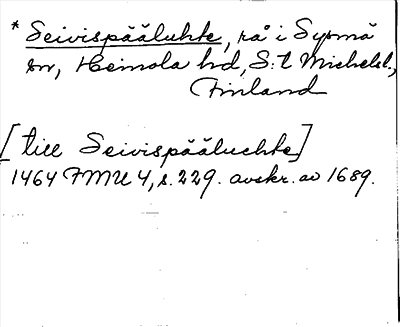 * Seivispääluhte, rå i Sysmä
sn, Heinola hd, S:t Michels l.,
Finland
[till Seivispääluchte]
1464 FMU 4, s. 229. avskr. av 1689.